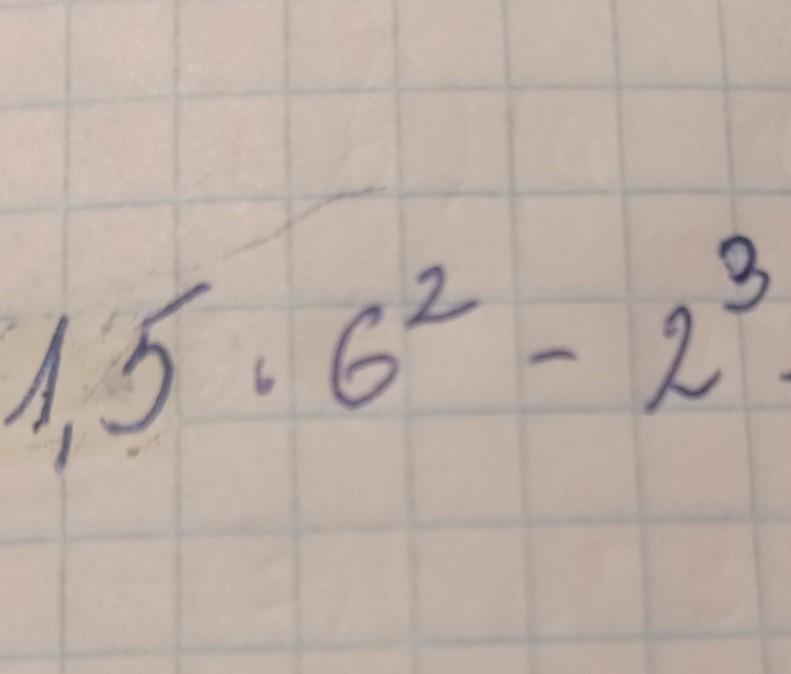 1,5 · 6² - 2³